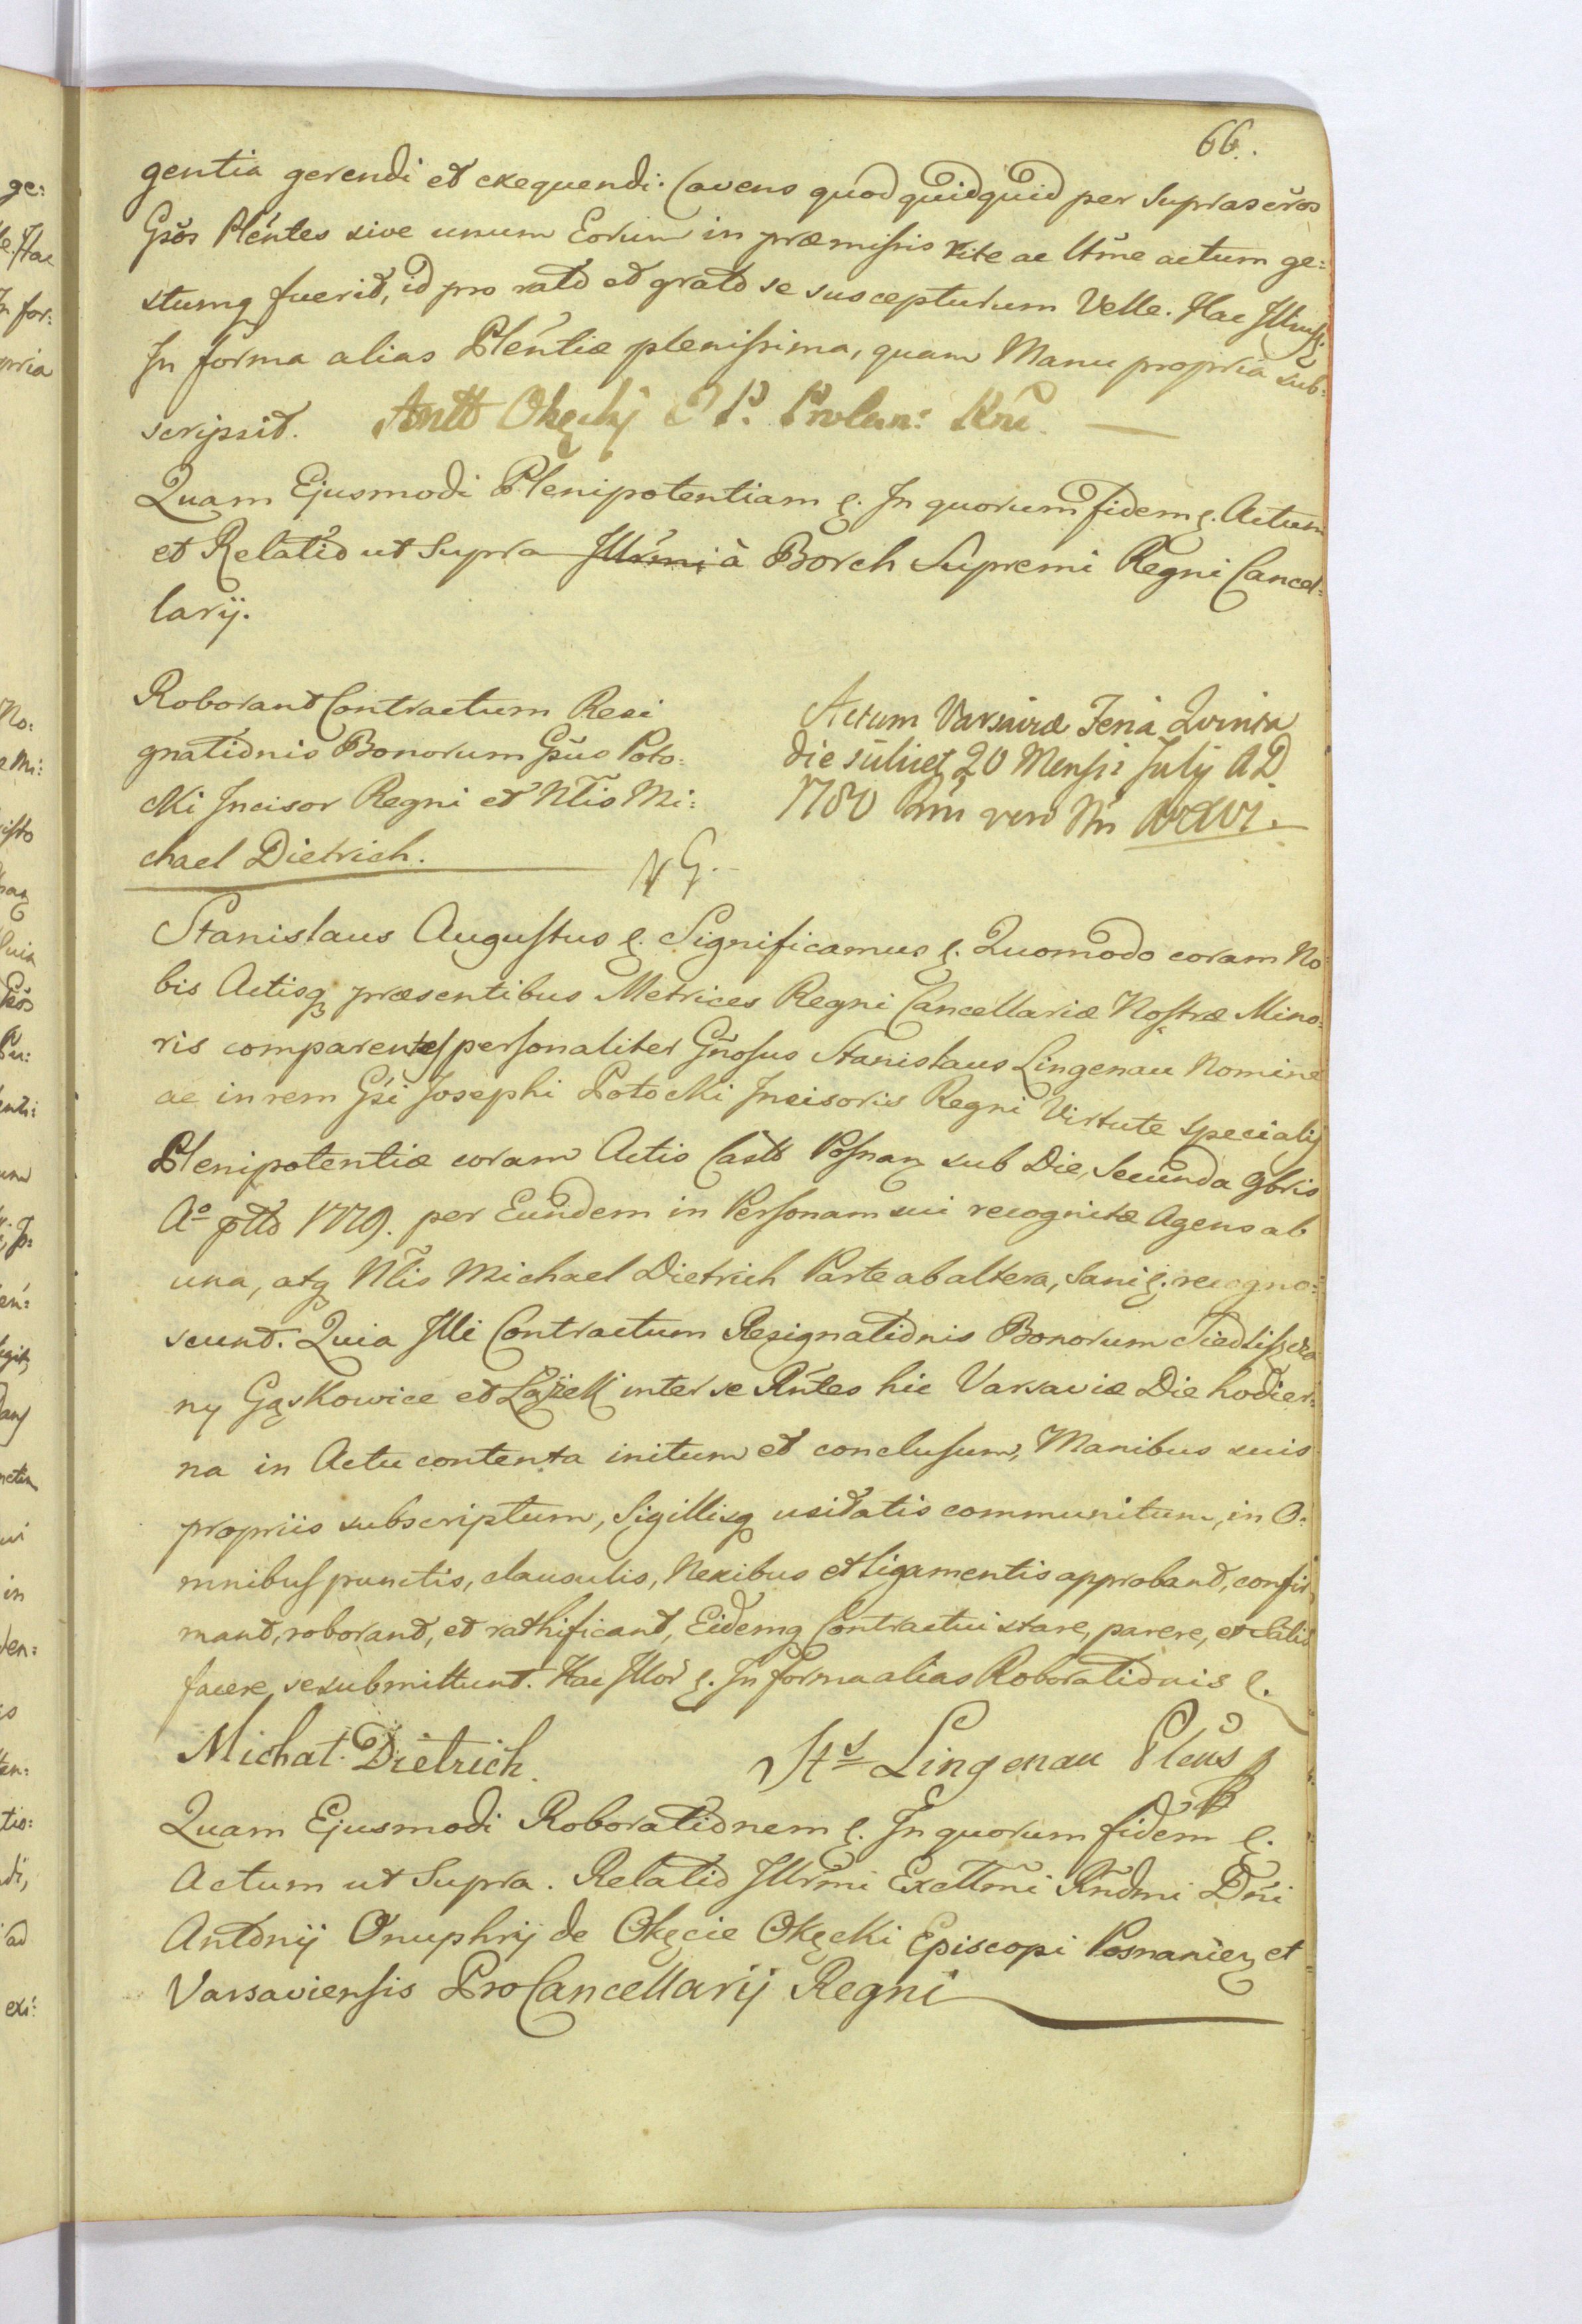 66.
gentia gerendi et exequendi. Cavens quod quidquid per Suprascr̃os
Gsõs Plẽntes sive unum Eorum in præmissis rite ac ltm̃e actum ge:
stumq fuerit, id pro rato et grato se suscepturum Velle. Hac
In forma alias Plẽntiæ plenissima, quam Manu propria sub:
scripsit. Antt Okęcki
Quam Ejusmodi Plenipotentiam &. In quorum fidem &. Actum
et Relatio ut Supra Illr̃mi à Borch Supremi Regni Cancel-
larij.
Roborant Contractum Resi
gnationis Bonorum Gsus Poto:
cki Incisor Regni et Nlis Mi:
chael Dietrich.
Actum Varsaviæ Feria Quinta
die scilicet 20 Mensis July AD
1780
NG.
Stanislaus Augustus &. Significamus &. Quomodo coram No:
bis Actisq præsentibus Metrices Regni Cancellariæ Nostræ Mino:
ris comparentes personaliter Gñosus Stanislaus Lingenau Nomine
ac in rem Gsi Josephi Potocki Incisoris Regni Virtute specialis
Plenipotentiæ coram Actis Castr Posnan sub Die Secunda 9bris
Aº ptto 1779. per Eundem in Personam sui recognitæ Agens ab
una, atq Nlis Michael Dietrich Parte ab altera, Sani &. recogno:
scunt. Quia Illi Contractum Resignationis Bonorum Siedliszcza
ny Gąskowice et Łążek inter se Rñtes hic Varsaviæ Die hodier:
na in Actu contenta initum et conclusum, Manibus suis
propriis subscriptum, Sigillisq usitatis communitum, in O:
mnibus punctis, clausulis, Nexibus et Ligamentis approbant, confir
mant, roborant, et rathificant, Eidemq Contractui stare, parere, et Satis
facere se submittunt. Hac Illor &. In forma alias Roborationis &.
Michał Dietrich. Sts Lingenau Pleñs
Quam Ejusmodi Roborationem &. In quorum fidem &.
Actum ut Supra. Relatio Illr̃mi Excllm̃i Rñdmi Dñi
Antonij Onuphrij de Okęcie Okęcki Episcopi Posnanień et
Varsaviensis ProCancellarij Regni